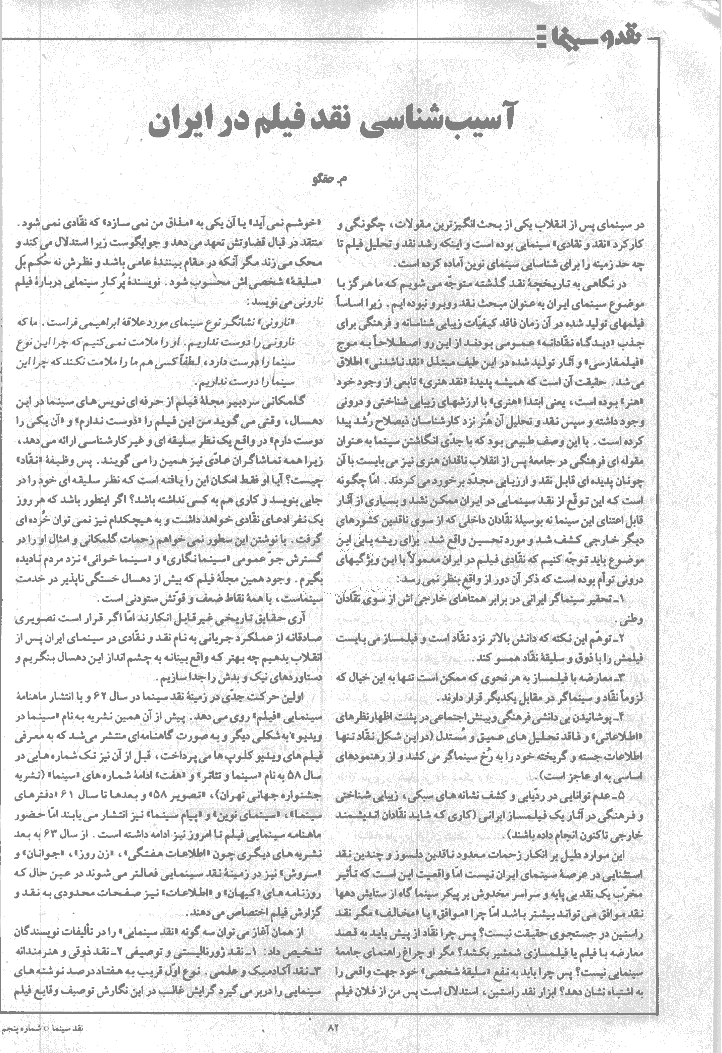 نقد و سینما
آسیب‌شناسی نقد فیلم در ایران
م. حقگو
در سینمای پس از انقلاب یکی از بحث انگیزترین مقولات، چگونگی و
کارکرد «نقد و نقادی» سینمایی بوده است و اینکه رشد نقد و تحلیل فیلم تا
چه حد زمینه را برای شناسایی سینمای نوین آماده کرده است.
در نگاهی به تاریخچهٔ نقد گذشته متوجّه می شویم که ما هرگز با
موضوع سینمای ایران به عنوان مبحث نقد روبرو نبوده ایم. زیرا اساساً
فیلمهای تولید شده در آن زمان فاقد کیفیّات زیبایی شناسانه و فرهنگی برای
جذب «دیدگاه نقّادانه» عمومی بودند. از این رو اصطلاحاً به موج
«فیلمفارسی» و آثار تولید شده در این طیف مبتذل «نقد ناشدنی» اطلاق
می شد. حقیقت آن است که همیشه پدیدهٔ «نقد هنری» تابعی از وجود خود
«هنر» بوده است، یعنی ابتدا «هنری» با ارزشهای زیبایی شناختی و درونی
وجود داشته و سپس نقد و تحلیل آن هُنر نزد کارشناسان ذیصلاح رُشد پیدا
کرده است. با این وصف طبیعی بود که با جدّی انگاشتن سینما به عنوان
مقوله ای فرهنگی در جامعهٔ پس از انقلاب ناقدان هنری نیز می بایست با آن
چونان پدیده ای قابل نقد و ارزیابی مجدّد برخورد می کردند. امّا چگونه
است که این توقع از نقد سینمایی در ایران ممکن نشد و بسیاری از آثار
قابل اعتنای این سینما نه بوسیلهٔ نقّادان داخلی که از سوی ناقدین کشورهای
دیگر خارجی کشف شد و مورد تحسین واقع شد. برای ریشه یابی این
موضوع باید توجّه کنیم که نقادی فیلم در ایران معمولاً با این ویژگیهای
درونی توأم بوده است که ذکر آن دور از واقع بنظر نمی رسد:
۱ـ تحقیر سینماگر ایرانی در برابر همتاهای خارجی اش از سوی نقّادان
وطنی
۲ـ توهّم این نکته که دانش بالاتر نزد نقّاد است و فیلمساز می بایست
فیلمش را با ذوق و سلیقهٔ نقّاد همسو کند.
۳ـ معارضه با فیلمساز به هر نحوی که ممکن است تنها به این خیال که
لزوماً نقّاد و سینماگر در مقابل یکدیگر قرار دارند.
۴ـ پوشانیدن بی دانشی فرهنگی و بینش اجتماعی در پشت اظهارنظرهای
«اطلاعاتی» و فاقد تحلیل های عمیق و مُستدل (در این شکل نقّاد تنها
اطلاعات جسته و گریخته خود را به رُخ سینماگر می کشد و از رهنمودهای
اساسی به او عاجز است).
۵ـ عدم توانایی در ردّیابی و کشف نشانه های سبکی، زیبایی شناختی
و فرهنگی در آثار یک فیلمساز ایرانی (کاری که شاید نقّادان اندیشمند
خارجی تاکنون انجام داده باشند)
این موارد دلیل بر انکار زحمات معدود ناقدین دلسوز و چندین نقد
استثنایی در عرصهٔ سینمای ایران نیست امّا واقعیت این است که تأثیر
مخرّب یک نقد بی پایه و سراسر مخدوش بر پیکر سینما گاه از ستایش دهها
نقد موافق می تواند بیشتر باشد امّا چرا «موافق» یا «مخالف» مگر نقد
راستین در جستجوی حقیقت نیست؟ پس چرا نقّاد از پیش باید به قصد
معارضه با فیلم یا فیلمسازی شمشیر بکشد؟ مگر او چراغ راهنمای جامعهٔ
سینمایی نیست؟ پس چرا باید به نفع «سلیقهٔ شخصی» خود جهت واقعی را
به اشتباه نشان دهد؟ ابزار نقد راستین، استدلال است پس من از فلان فیلم
«خوشم نمی آید» یا آن یکی به «مذاق من نمی سازد» که نقّادی نمی شود.
منتقد در قبال قضاوتش تعهد می دهد و جوابگوست زیرا استدلال می کند و
محک می زند مگر آنکه در مقام بینندهٔ عامی باشد و نظرش نه حُکم بل
«سلیقهٔ» شخصی اش محسوب شود. نویسندهٔ پُرکار سینمایی دربارهٔ فیلم
نارونی می نویسد:
«نارونی» نشانگر نوع سینمای مورد علاقهٔ ابراهیمی فراست. ما که
نارونی را دوست نداریم. او را ملامت نمی کنیم که چرا این نوع
سینما را دوست دارد، لطفاً کسی هم ما را ملامت نکند که چرا این
سینما را دوست نداریم.
گلمکانی سردبیر مجلهٔ فیلم از حرفه ای نویس های سینما در این
دهسال، وقتی می گوید من این فیلم را «دوست ندارم» و «آن یکی را
دوست دارم» در واقع یک نظر سلیقه ای و غیرکارشناسی ارائه می دهد،
زیرا همه تماشاگران عادّی نیز همین را می گویند. پس وظیفهٔ «نقّاد»
چیست؟ آیا او فقط امکان این را یافته است که نظر سلیقه ای خود را در
جایی بنویسد و کاری هم به کسی نداشته باشد؟ اگر اینطور باشد که هر روز
یک نفر ادعای نقّادی خواهد داشت و به هیچکدام نیز نمی توان خُرده ای
گرفت. با نوشتن این سطور نمی خواهم زحمات گلمکانی و امثال او را در
گسترش جوّ عمومی «سینمانگاری» و «سینماخوانی» نزد مردم نادیده
بگیرم. وجود همین مجلهٔ فیلم که بیش از دهسال خستگی ناپذیر در خدمت
سینماست، با همهٔ نقاط ضعف و قوّتش ستودنی است.
آری حقایق تاریخی غیرقابل انکارند امّا اگر قرار است تصویری
صادقانه از عملکرد جریانی به نام نقد و نقادی در سینمای ایران پس از
انقلاب بدهیم چه بهتر که واقع بینانه به چشم انداز این دهسال بنگریم و
دستاوردهای نیک و بدش را جدا سازیم.
اولین حرکت جدّی در زمینهٔ نقد سینما در سال ۶۲ و با انتشار ماهنامهٔ
سینمایی «فیلم» روی می دهد. پیش از آن همین نشریه به نام «سینما در
ویدیو» به شکلی دیگر و به صورت گاهنامه ای منتشر می شد که به معرفی
فیلم های ویدیو کلوپ ها می پرداخت، قبل از آن نیز تک شماره هایی در
سال ۵۸ به نام «سینما و تئاتر» و «هفت» ادامهٔ شماره های «سینما» (نشریه
جشنواره جهانی تهران)، «تصویر ۵۸» و بعدها تا سال ۶۱ «دفترهای
سینما»، «سینمای نوین» و «پیام سینما» نیز انتشار می یابند امّا حضور
ماهنامه سینمایی فیلم تا امروز نیز ادامه داشته است. از سال ۶۳ به بعد
نشریه های دیگری چون «اطلاعات هفتگی»، «زن روز»، «جوانان» و
«سروش» نیز در زمینهٔ نقد سینمایی فعالتر می شوند در عین حال که
روزنامه های «کیهان» و «اطلاعات» نیز صفحات محدودی به نقد و
گزارش فیلم اختصاص می دهند.
از همان آغاز می توان سه گونه «نقد سینمایی» را در تألیفات نویسندگان
تشخیص داد: ۱ـ نقد ژورنالیستی و توصیفی ۲ـ نقد ذوقی و هنرمندانه
۳ـ نقد آکادمیک و علمی. نوع اوّل قریب به هفتاد درصد نوشته های
سینمایی را دربر می گیرد گرایش غالب در این نگارش توصیف وقایع فیلم
۸۲
نقد سینما □ شماره پنجم